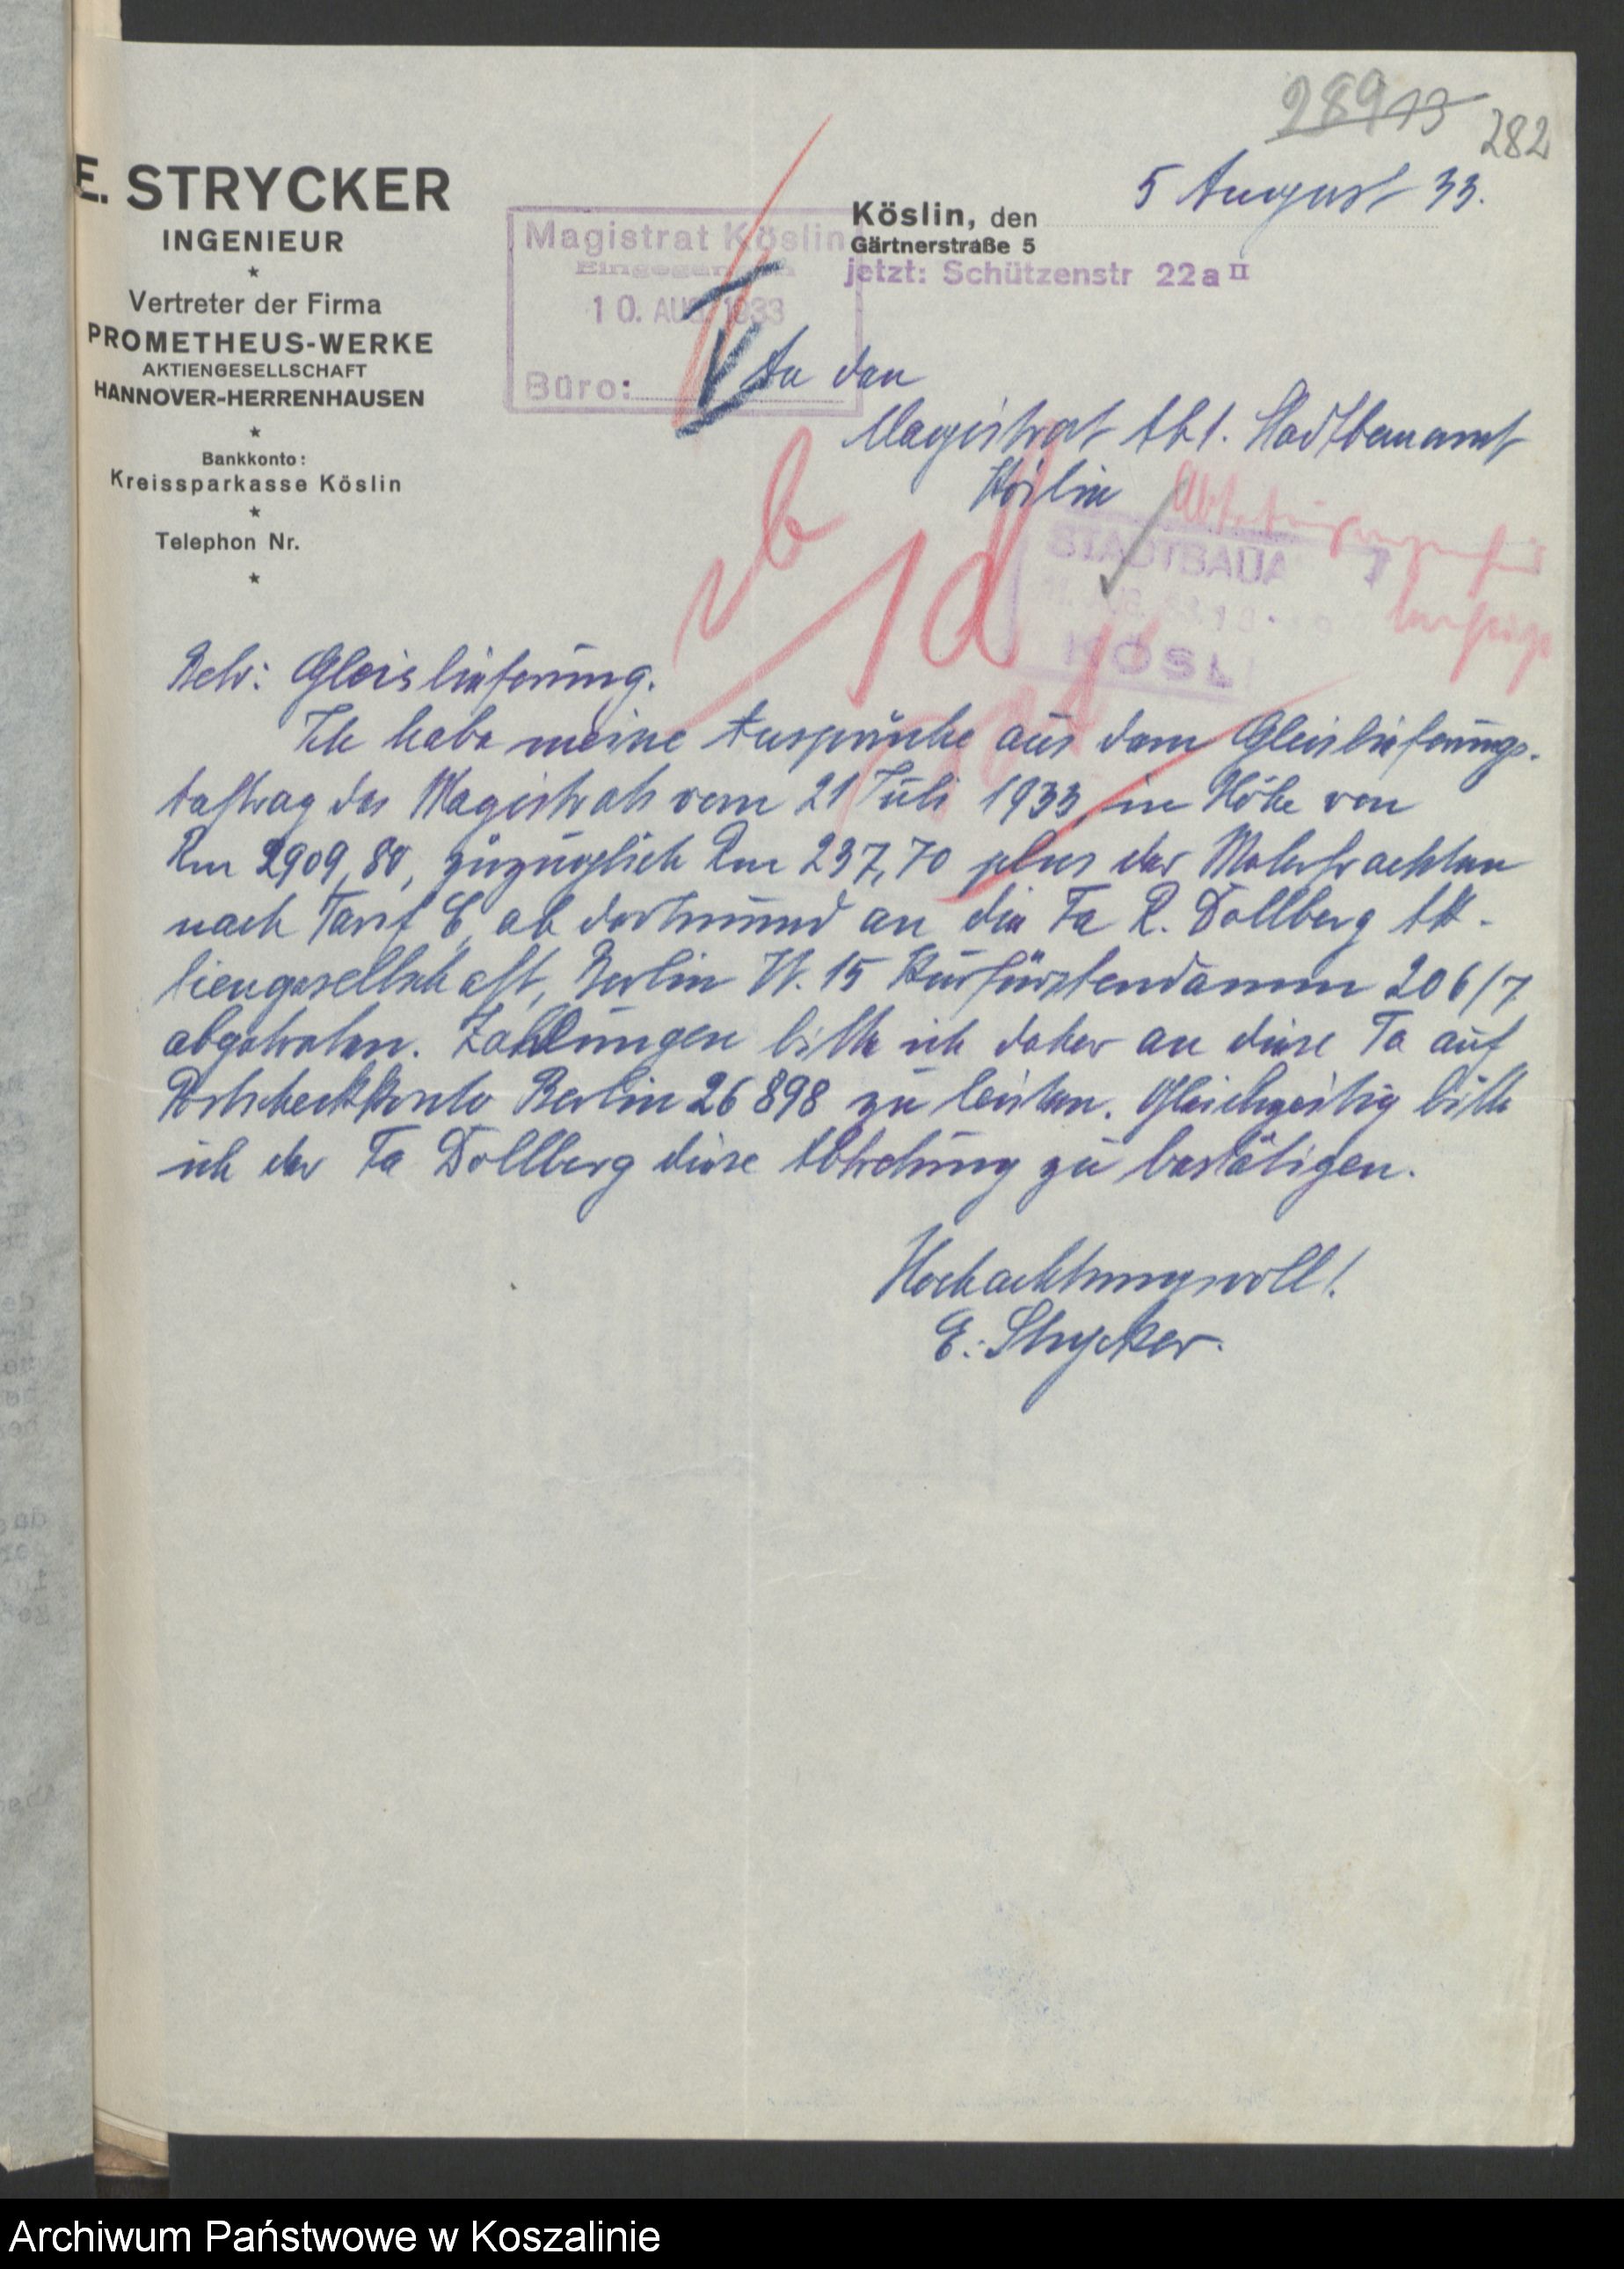 289 13
282
E. STRYCKER
INGENIEUR
Vertreter der Firma
PROMETHEUS-WERKE
AKTIENGESELLSCHAFT
HANNOVER-HERRENHAUSEN
Bankkonto:
Kreissparkasse Köslin
Telephon Nr.
Magistrat Köslin
Eingegangen
10. AUG. 1933
Büro:
Köslin, den 5 August 33.
Gärtnerstraße 5
jetzt: Schützenstr 22a II
An den
Magistrat Abt. Stadtbauamt
Köslin
STADTBAUA
KÖSLI
Betr: Gleislieferung.
Ich habe meine Ansprüche aus dem Gleislieferungs-
auftrag des Magistrats vom 21 Juli 1933, in Höhe von
Rm 2909,80, zuzüglich Rm 237,70 plus der Mehrfrachten
nach Tarif 6, ab Dortmund an die Fa R. Dollberg Ak-
tiengesellschaft, Berlin W. 15 Kurfürstendamm 206/7
abgetreten. Zahlungen bitte ich daher an diese Fa auf
Postscheckkonto Berlin 26898 zu leisten. Gleichzeitig bitte
ich der Fa Dollberg diese Abtretung zu bestätigen.
Hochachtungsvoll!
E. Strycker.
Archiwum Państwowe w Koszalinie